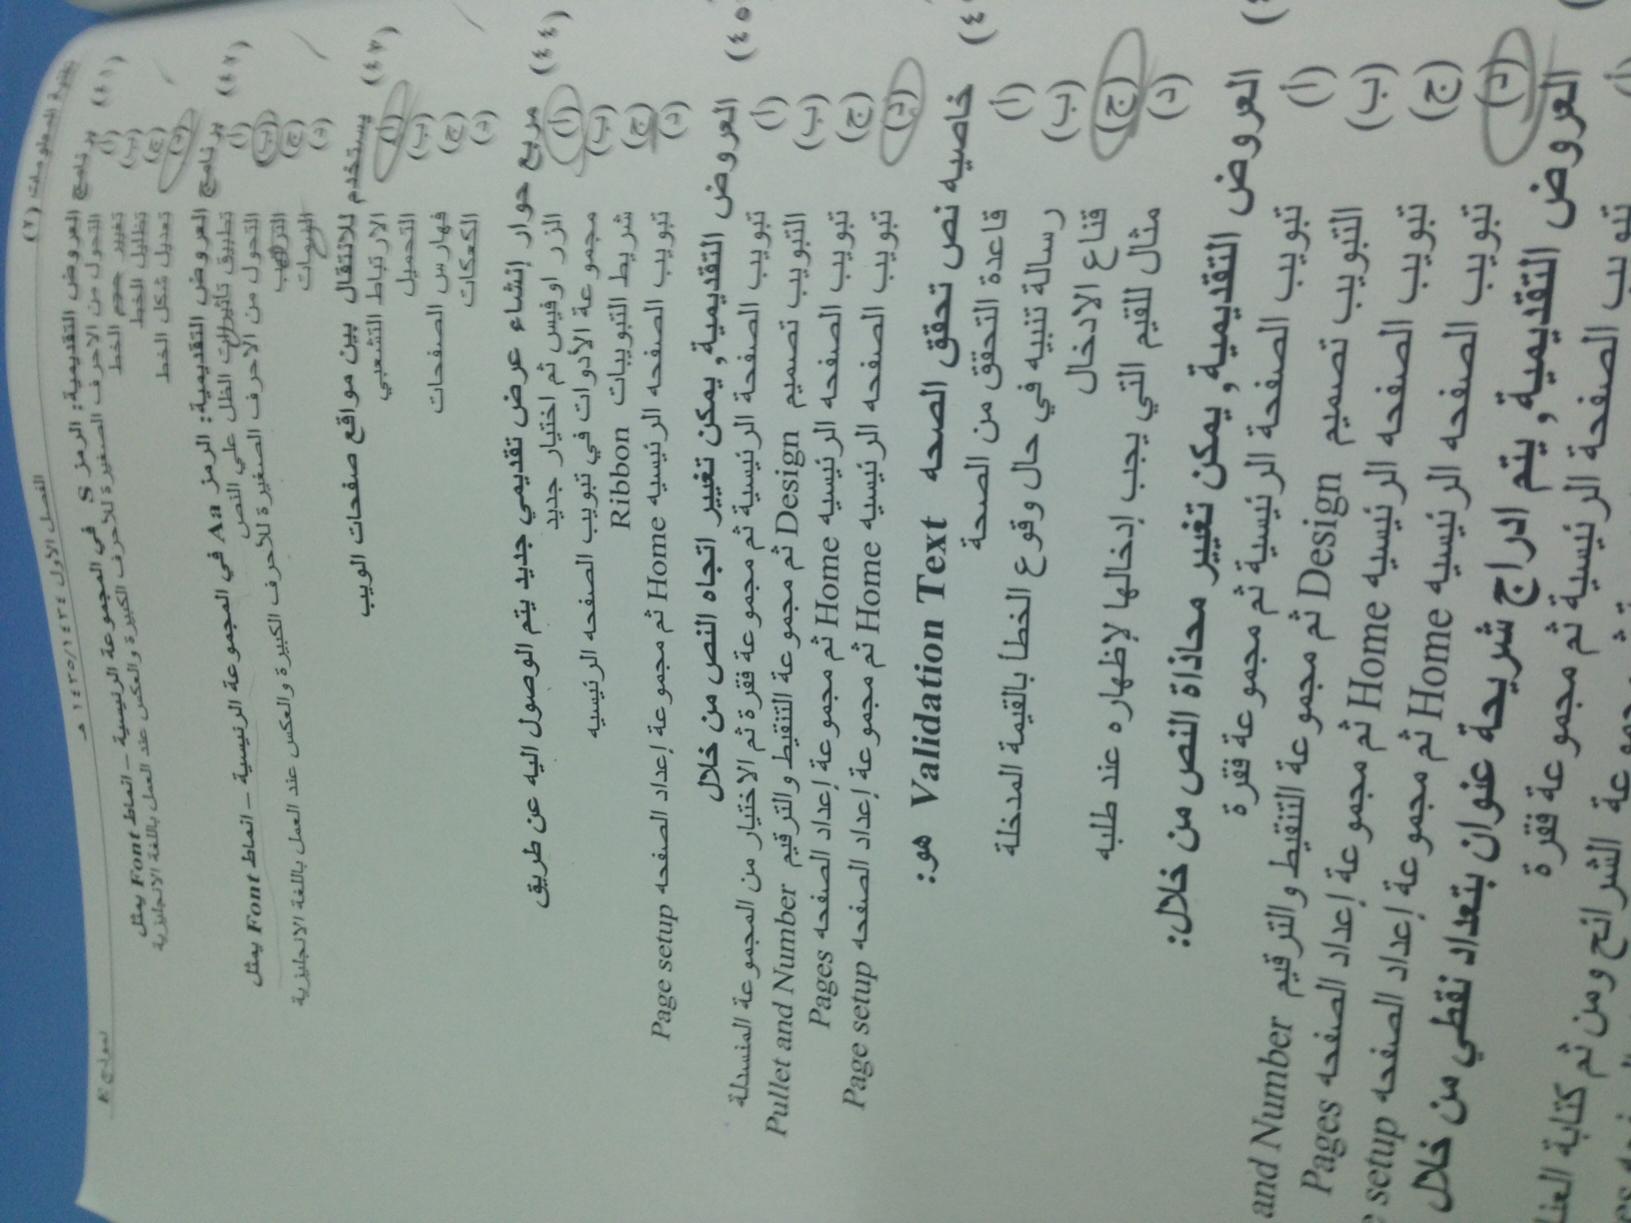 تقنية المعلومات (٢) الفصل الأول ١٤٣٤/١٤٣٥ هـ نموذج E
(٤١) برنامج العروض التقديمية: الرمز S في المجموعة الرئيسية – انماط Font يمثل
(أ) التحول من الاحرف الصغيرة للأحرف الكبيرة والعكس عند العمل باللغة الانجليزية
(ب) تغيير حجم الخط
(ج) تظليل الخط
(د) تعديل شكل الخط
(٤٢) برنامج العروض التقديمية: الرمز Aa في المجموعة الرئيسية – انماط Font يمثل
(أ) تطبيق تأثيرات الظل على النص
(ب) التحول من الاحرف الصغيرة للأحرف الكبيرة والعكس عند العمل باللغة الانجليزية
(ج)
(د)
(٤٣) يستخدم للانتقال بين مواقع صفحات الويب
(أ) الارتباط التشعبي
(ب) التحميل
(ج) فهارس الصفحات
(د) الكعكات
(٤٤) مربع حوار إنشاء عرض تقديمي جديد يتم الوصول اليه عن طريق
(أ) الزر اوفيس ثم اختيار جديد
(ب) مجموعة الأدوات في تبويب الصفحه الرئيسيه
(ج) شريط التبويبات Ribbon
(د) تبويب الصفحه الرئيسيه Home ثم مجموعة إعداد الصفحه Page setup
(٤٥) العروض التقديمية, يمكن تغيير اتجاه النص من خلال
(أ) تبويب الصفحة الرئيسية ثم مجموعة فقرة ثم الاختيار من المجموعة المنسدلة
(ب) التبويب تصميم Design ثم مجموعة التنقيط والترقيم Pullet and Number
(ج) تبويب الصفحه الرئيسيه Home ثم مجموعة إعداد الصفحه Pages
(د) تبويب الصفحه الرئيسيه Home ثم مجموعة إعداد الصفحه Page setup
خاصيه نص تحقق الصحه Validation Text هو:
(أ) قاعدة التحقق من الصحة
(ب) رسالة تنبيه في حال وقوع الخطأ بالقيمة المدخلة
(ج) قناع الادخال
(د) مثال للقيم التي يجب إدخالها لإظهاره عند طلبه
العروض التقديمية, يمكن تغيير محاذاة النص من خلال:
(أ) تبويب الصفحة الرئيسية ثم مجموعة فقرة
(ب) التبويب تصميم Design ثم مجموعة التنقيط والترقيم and Number
(ج) تبويب الصفحه الرئيسيه Home ثم مجموعة إعداد الصفحه Pages
(د) تبويب الصفحه الرئيسيه Home ثم مجموعة إعداد الصفحه setup
العروض التقديمية, يتم ادراج شريحة عنوان بتعداد نقطي من خلال
(أ) تبويب الصفحة الرئيسية ثم مجموعة فقرة
الشرائح ومن ثم كتابة